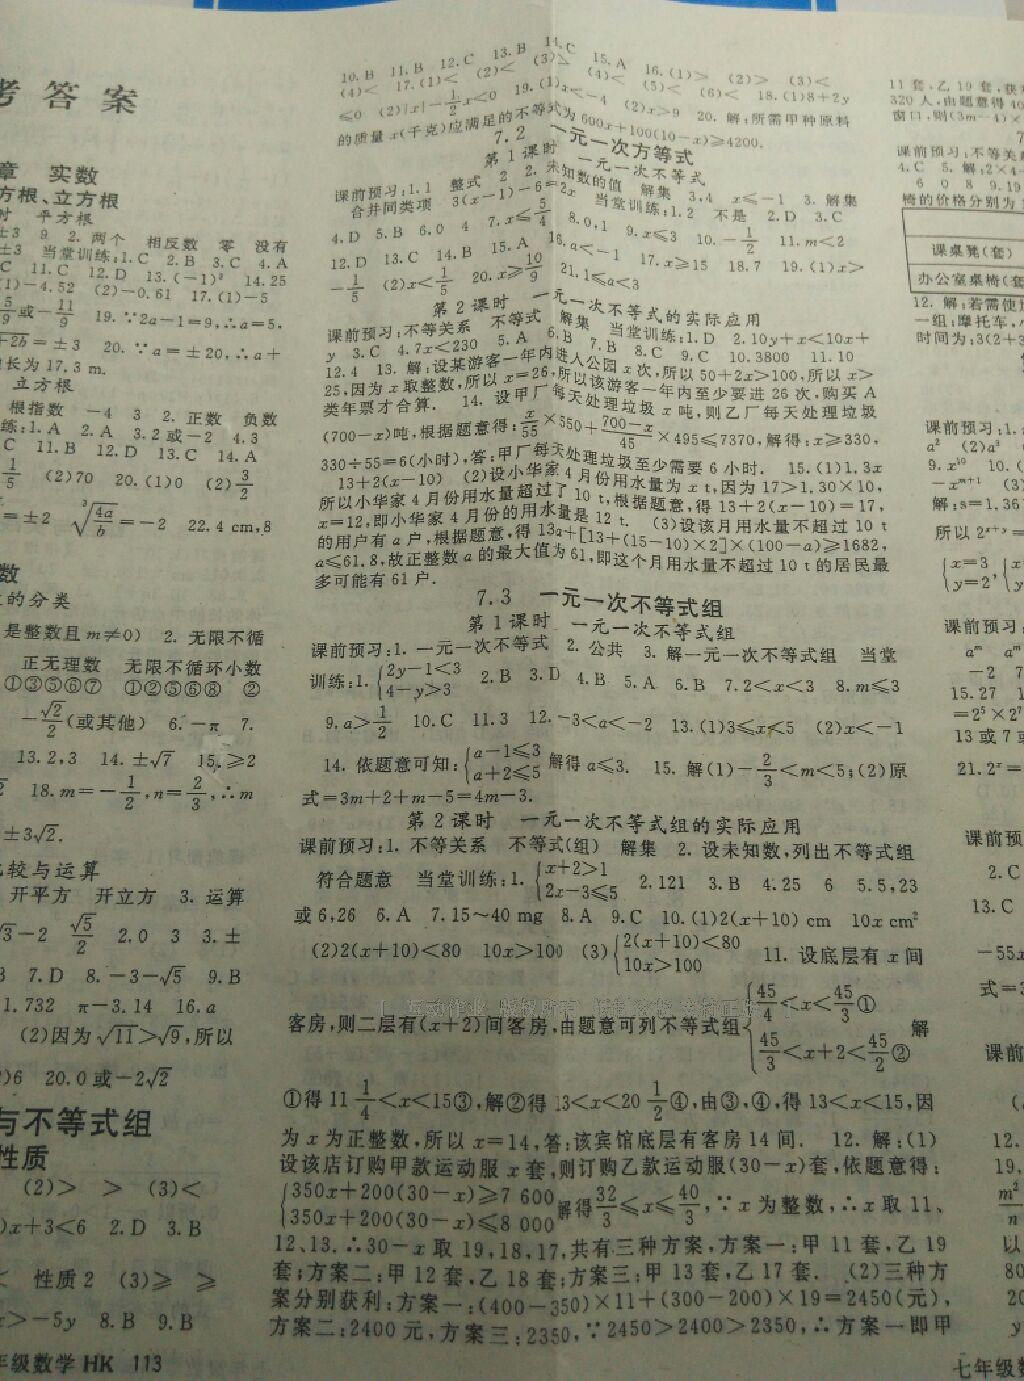 考答案
章 实数
方根、立方根
时 平方根
±3 9 2. 两个 相反数 零 没有
±3 当堂训练:1.C 2.B 3.C 4.A
C 11.C 12.D 13.(-1)² 14.25
(1)-4.52 (2)-0.61 17.(1)-5
5/9或-11/9 19.∵2a-1=9,∴a=5.
=±3 20.∵a=±20,∴a+
长为17.3 m.
立方根
根指数 -4 3 2. 正数 负数
练:1.A 2.A 3.2或-2 4.3
C 11.B 12.D 13.C 14.A
1/5 (2)70 20.(1)0 (2)3/2
=±2 ³√(4a/b)=-2 22.4 cm,8
数
的分类
是整数且m≠0) 2. 无限不循
正无理数 无限不循环小数
①③⑤⑥⑦ ①②⑤⑥⑧ ②
-√2/2(或其他) 6.-π 7.
13.2,3 14.±√7 15.≥2
18.m=-1/2,n=2/3,∴m
±3√2.
较与运算
开平方 开立方 3. 运算
√3-2 √5/2 2.0 3 3.±
7.D 8.-3-√5 9.B
1.732 π-3.14 16.a
(2)因为√11>√9,所以
)6 20.0或-2√2
与不等式组
性质
(2)> > (3)<
)x+3<6 2.D 3.B
< 性质2 (3)≥ ≥
x>-5y 8.B 9.B
年级数学 HK 113
10.B 11.B 12.C 13.B 14.C 15.A 16.(1)> (2)> (3)<
(4)< 17.(1)< (2)< (3)> (4)< (5)< (6)< 18.(1)8+2y
≤0 (2)|x|-1/2x<0 19.(1)x<-4 (2)x>9 20. 解:所需甲种原料
的质量x(千克)应满足的不等式为600x+100(10-x)≥4200.
7.2 一元一次方等式
第1课时 一元一次不等式
课前预习:1.1 整式 2 2. 未知数的值 解集 3.4 x≤-1 3. 解集
合并同类项 3(x-1)-6=2x 当堂训练:1.2 不是 2.D 3.C
4.D 5.B 6.0 4 7.x≤5/4 8.0,1 9.x≤3 10.-1/2 11.m<2
12.D 13.C 14.B 15.A 16.a<-1 17.x≥15 18.7 19.(1)x>
-1/5 (2)x<1/5 20.x≥10/9 21.1≤a<3
第2课时 一元一次不等式的实际应用
课前预习:不等关系 不等式 解集 当堂训练:1.D 2.10y+x<10x+
y 3.C 4.7x<230 5.A 6.B 7.B 8.C 9.C 10.3800 11.10
12.4 13. 解:设某游客一年内进入公园x次,所以50+2x>100,所以x>
25,因为x取整数,所以x=26,所以该游客一年内至少要进26次,购买A
类年票才合算. 14. 设甲厂每天处理垃圾x吨,则乙厂每天处理垃圾
(700-x)吨,根据题意得:x/55×550+(700-x)/45×495≤7370,解得:x≥330,
330÷55=6(小时),答:甲厂每天处理垃圾至少需要6小时. 15.(1)1.3x
13+2(x-10) (2)设小华家4月份用水量为x t,因为17>1.30×10,
所以小华家4月份用水量超过了10 t,根据题意,得13+2(x-10)=17,
x=12,即小华家4月份的用水量是12 t. (3)设该月用水量不超过10 t
的用户有a户,根据题意,得13a+[13+(15-10)×2]×(100-a)≥1682,
a≤61.8,故正整数a的最大值为61,即这个月用水量不超过10 t的居民最
多可能有61户.
7.3 一元一次不等式组
第1课时 一元一次不等式组
课前预习:1. 一元一次不等式 2. 公共 3. 解一元一次不等式组 当堂
训练:1.{2y-1<3 4-y>3 2.B 3.D 4.B 5.A 6.B 7.2<x<3 8.m≤3
9.a>1/2 10.C 11.3 12.-3<a<-2 13.(1)3≤x<5 (2)x<-1
14. 依题意可知:{a-1≤3 a+2≤5 解得a≤3. 15. 解(1)-2/3<m<5;(2)原
式=3m+2+m-5=4m-3.
第2课时 一元一次不等式组的实际应用
课前预习:1. 不等关系 不等式(组) 解集 2. 设未知数,列出不等式组
符合题意 当堂训练:1.{x+2>1 2x-3≤5 2.121 3.B 4.25 6 5.5,23
或6,26 6.A 7.15~40 mg 8.A 9.C 10.(1)2(x+10) cm 10x cm²
(2)2(x+10)<80 10x>100 (3){2(x+10)<80 10x>100 11. 设底层有x间
客房,则二层有(x+2)间客房,由题意可列不等式组{45/4<x<45/3① 45/3<x+2<45/2② 解
①得11 1/4<x<15③,解②得13<x<20 1/2④,由③,④,得13<x<15,因
为x为正整数,所以x=14,答:该宾馆底层有客房14间. 12. 解:(1)
设该店订购甲款运动服x套,则订购乙款运动服(30-x)套,依题意得:
{350x+200(30-x)≥7 600 350x+200(30-x)≤8 000 解得32/3≤x≤40/3,∵x为整数,∴x取11、
12、13.∴30-x取19,18,17,共有三种方案,方案一:甲11套,乙19
套;方案二:甲12套,乙18套;方案三:甲13套,乙17套. (2)三种方
案分别获利:方案一:(400-350)×11+(300-200)×19=2450(元),
方案二:2400元,方案三:2350,∵2450>2400>2350,∴方案一即甲
11套,乙19套,获
320人,由题意得40
窗口,则(3m-4)×
课前预习:不等关
4.C 5. 解:2×4-
6 0 8 9.19
椅的价格分别为1
课桌凳(套)
办公室桌椅(套
12. 解:若需使
一组:摩托车,
时间为:3(2+3
课前预习:1.
a² (2)a³
9.x¹⁰ 10.(
-xᵐ⁺¹ (3)
解:s=1.36
所以2ˣ⁺ʸ=
{x=3 y=2,
课前预习:
aᵐ aᵐ
-2 7
15.27 1
=2⁵×2⁷
13或7或
21.2ˣ=
课前预
2.C
13.C
-55x
式=3
课前
12.
19.
m²/n
以
80
20
y
七年级数